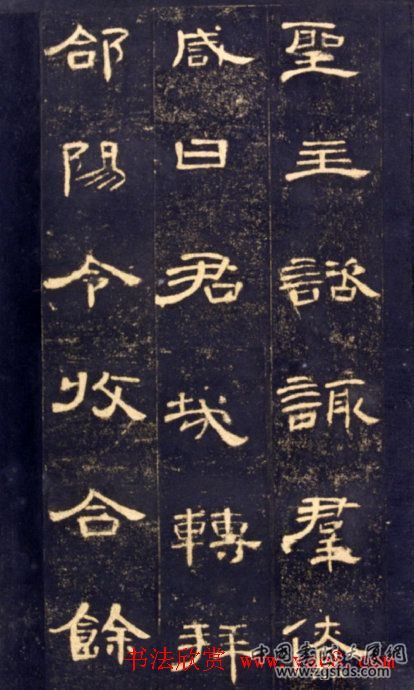 聖主諮諏羣僚
咸曰君哉轉拜
郃陽令收合餘
书法欣赏
中国书法大展网
www.zgsfds.com